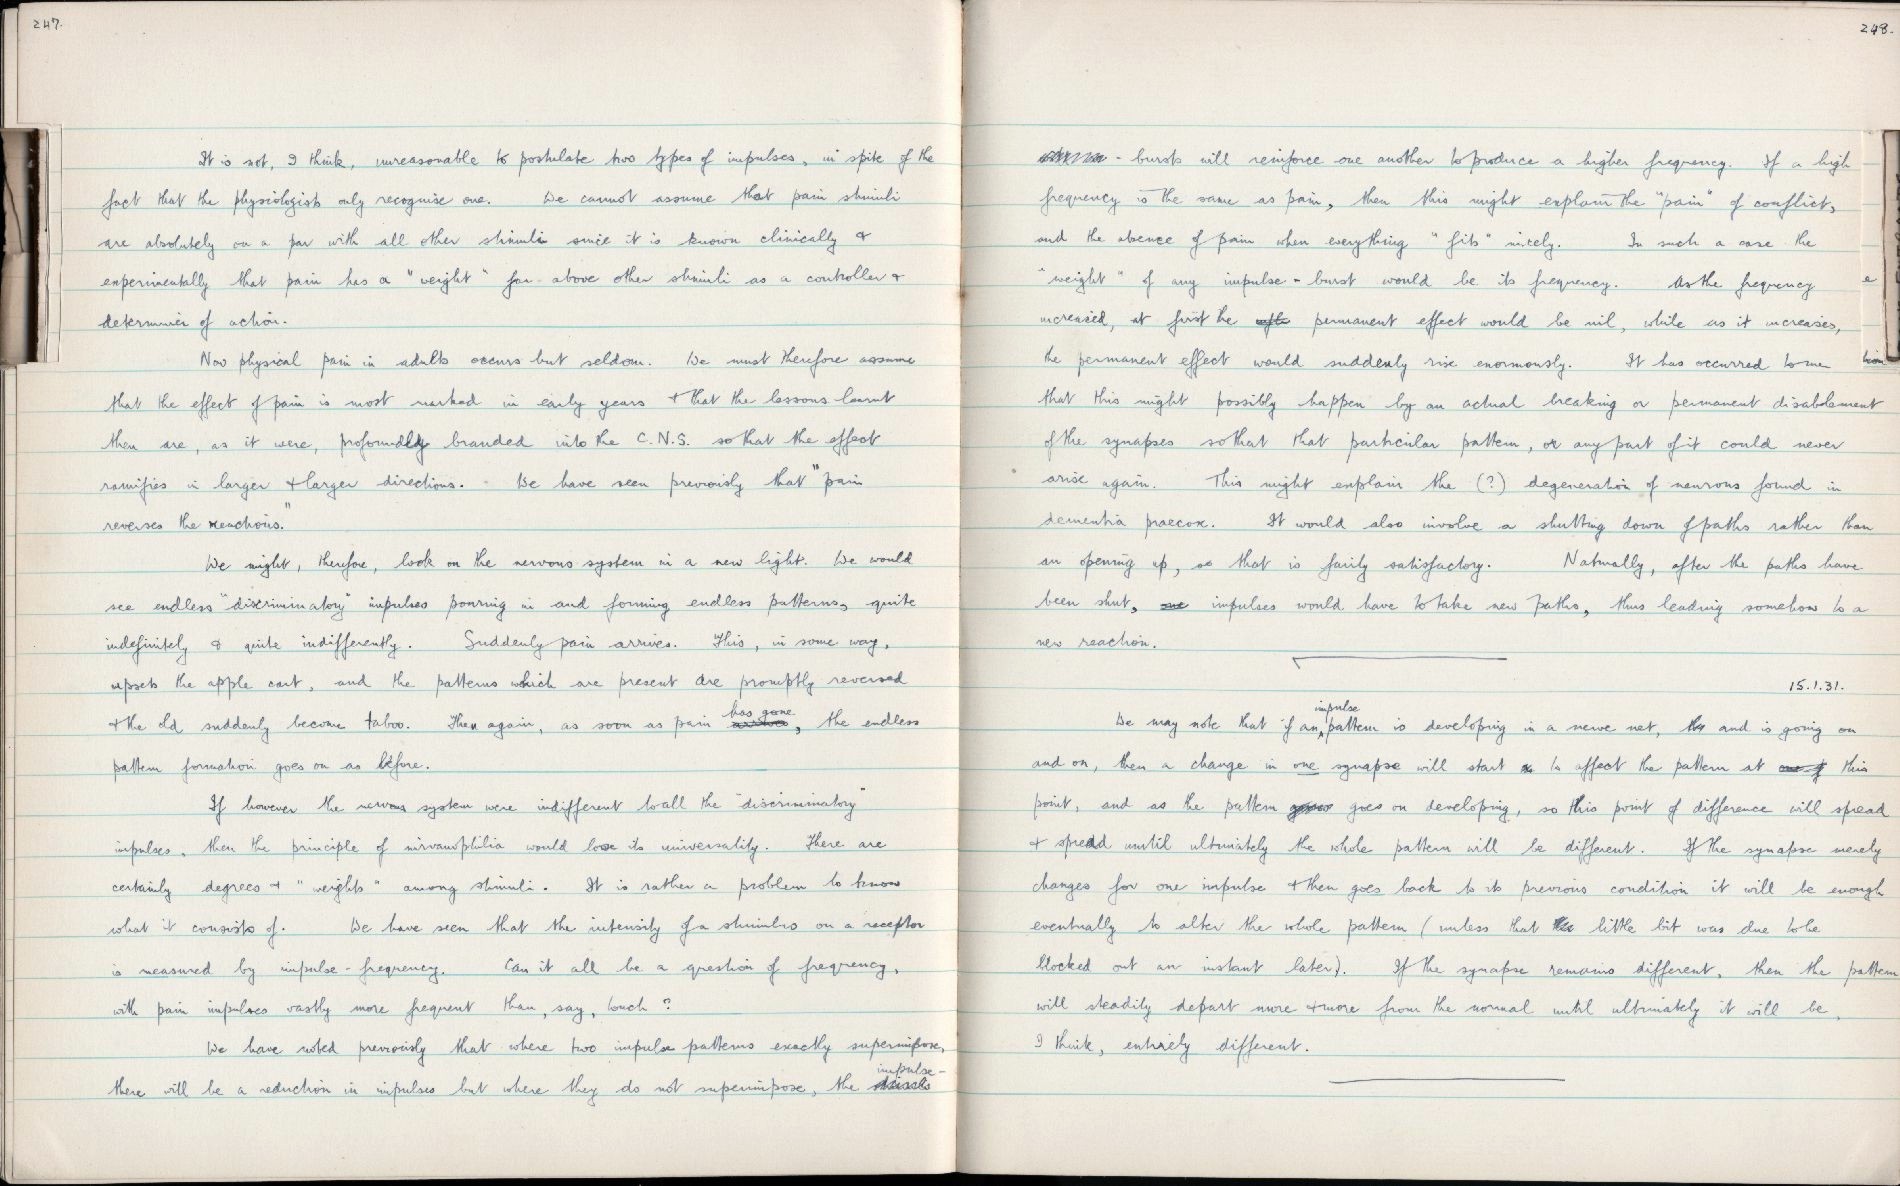 247.
It is not, I think, unreasonable to postulate two types of impulses, in spite of the
fact that the physiologists only recognise one. We cannot assume that pain stimuli
are absolutely on a par with all other stimuli since it is known clinically &
experimentally that pain has a "weight" far above other stimuli as a controller &
determiner of action.
Now physical pain in adults occurs but seldom. We must therefore assume
that the effect of pain is most marked in early years & that the lessons learnt
then are, as it were, profoundly branded into the C.N.S. so that the effect
ramifies in larger & larger directions. We have seen previously that "pain
reverses the reactions."
We might, therefore, look on the nervous system in a new light. We would
see endless "discriminatory" impulses pouring in and forming endless patterns, quite
indefinitely & quite indifferently. Suddenly pain arrives. This, in some way,
upsets the apple cart, and the patterns which are present are promptly reversed
& the old suddenly become taboo. Then again, as soon as pain has gone, the endless
pattern formation goes on as before.
If however the nervous system were indifferent to all the "discriminatory"
impulses, then the principle of nirvanophilia would lose its universality. There are
certainly degrees & "weights" among stimuli. It is rather a problem to know
what it consists of. We have seen that the intensity of a stimulus on a receptor
is measured by impulse-frequency. Can it all be a question of frequency,
with pain impulses vastly more frequent than, say, touch?
We have noted previously that where two impulse patterns exactly superimpose,
there will be a reduction in impulses but where they do not superimpose, the impulse-
248.
- bursts will reinforce one another to produce a higher frequency. If a high
frequency is the same as pain, then this might explain the "pain" of conflict,
and the absence of pain when everything "fits" nicely. In such a case the
"weight" of any impulse-burst would be its frequency. As the frequency
increased, at first the permanent effect would be nil, while as it increases,
the permanent effect would suddenly rise enormously. It has occurred to me
that this might possibly happen by an actual breaking or permanent disablement
of the synapses so that that particular pattern, or any part of it could never
arise again. This might explain the (?) degeneration of neurons found in
dementia praecox. It would also involve a shutting down of paths rather than
an opening up, so that is fairly satisfactory. Naturally, after the paths have
been shut, impulses would have to take new paths, thus leading somehow to a
new reaction.
15.1.31.
We may note that if an impulse pattern is developing in a nerve net, and is going on
and on, then a change in one synapse will start to affect the pattern at this
point, and as the pattern goes on developing, so this point of difference will spread
& spread until ultimately the whole pattern will be different. If the synapse merely
changes for one impulse & then goes back to its previous condition it will be enough
eventually to alter the whole pattern (unless that little bit was due to be
blocked out an instant later). If the synapse remains different, then the pattern
will steadily depart more & more from the normal until ultimately it will be,
I think, entirely different.